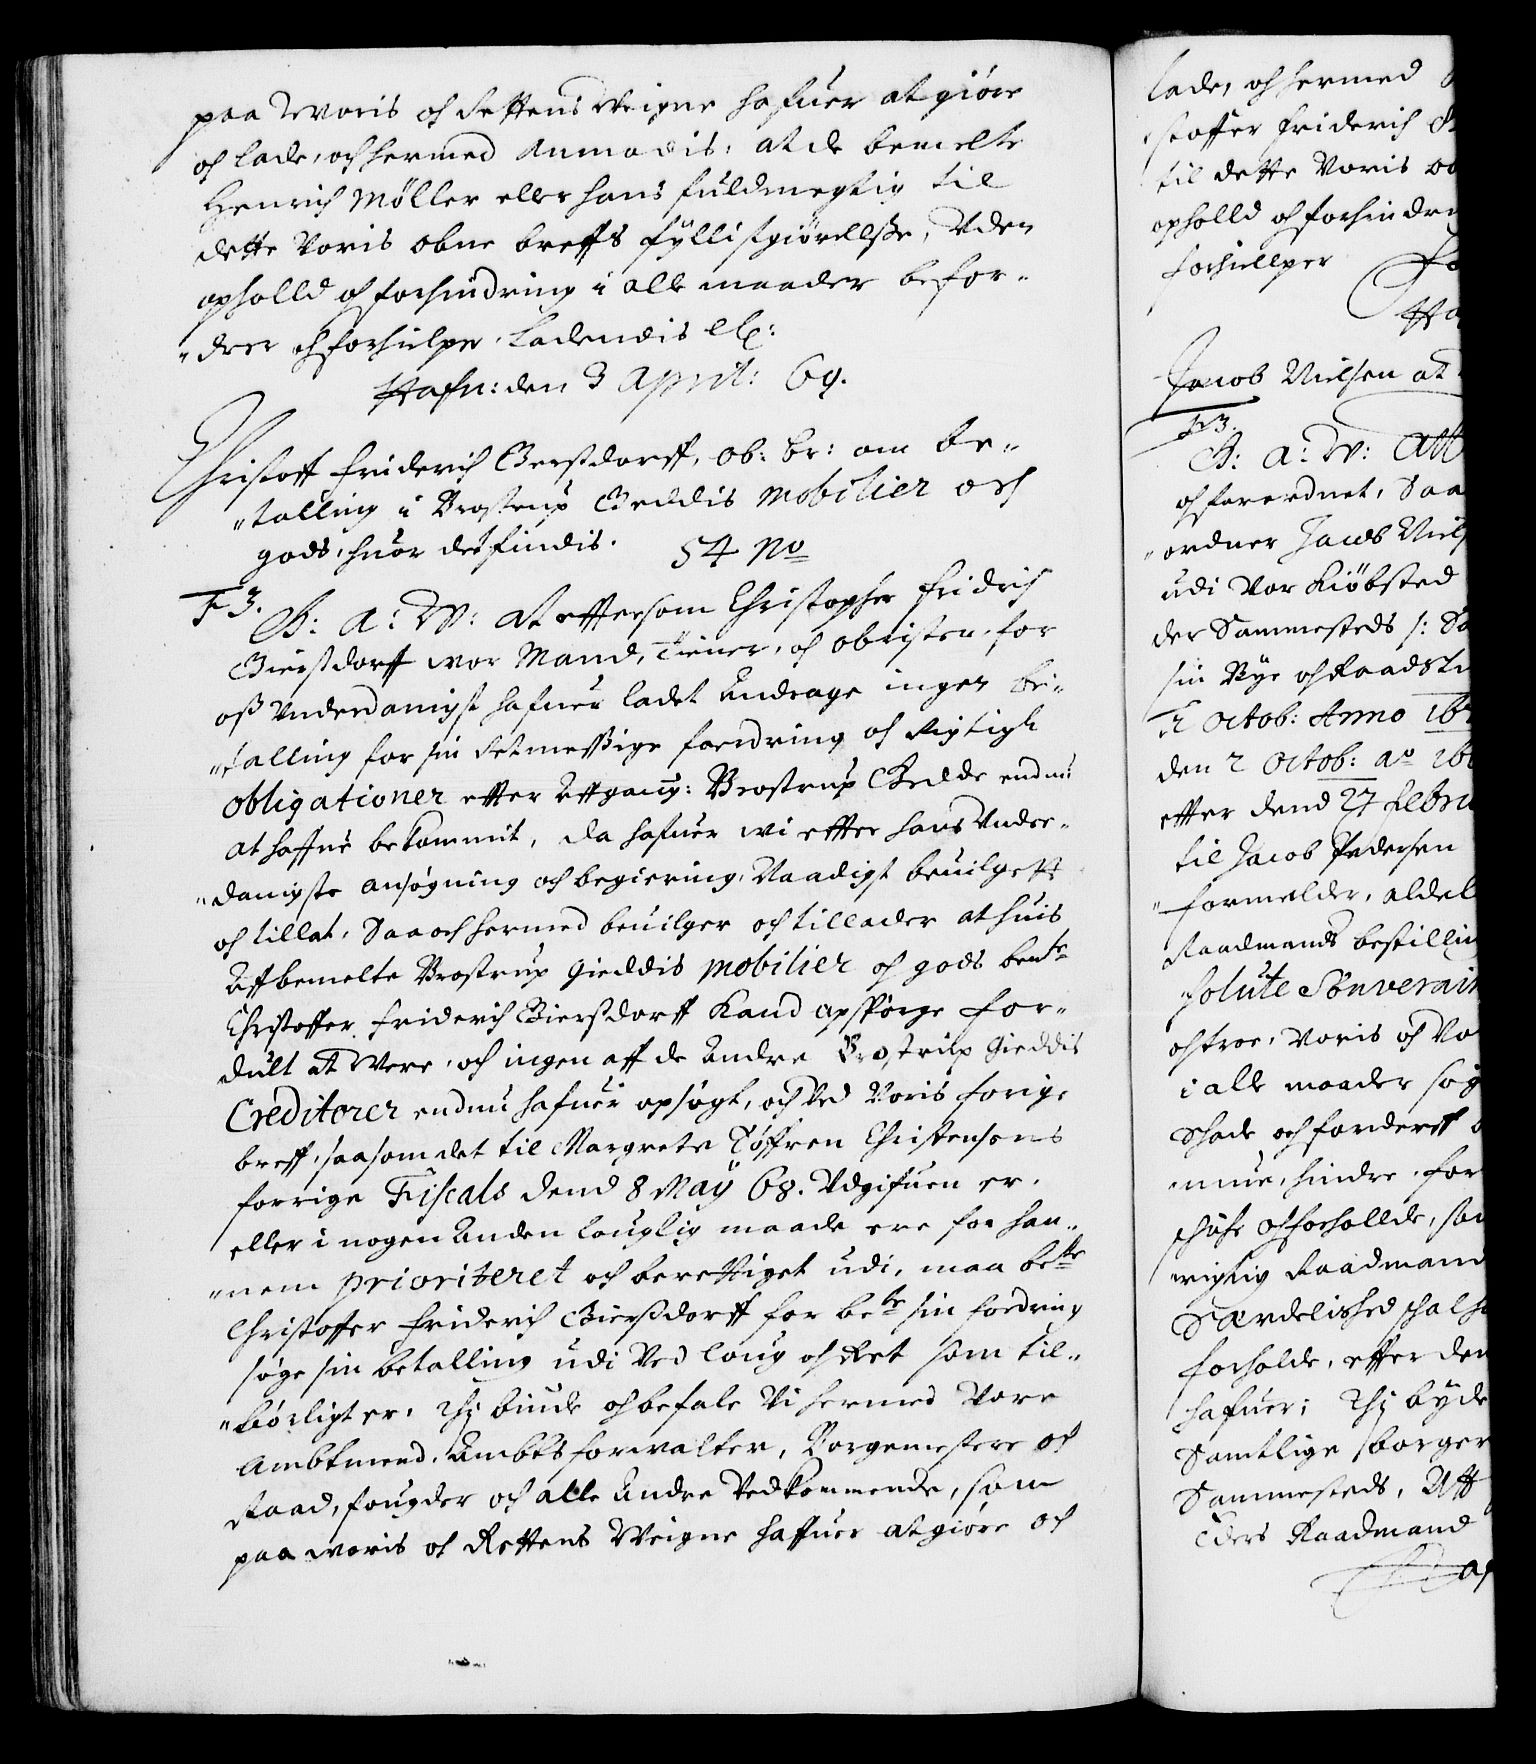 paa Woris och Rettens Weigne hafuer at giöre
och lade, och hermed Anmodis: at de bemelte
Henrich Møller eller hans fuldmegtig til
dette Voris obne breffs fyllistgiörellsse, Uden
ophelld och forhindring i alle maader befor-
"drer och forhielper. Ladendis etc:
Hafn: den 3 April: 69.
Christoff Friderich Gerssdorff, ob: br: om Be-
"talling i Brostrup Geddis mobilier och
gods, huor det findis. 54 No
F 3. G: A: W: At eftersom Christopher Fridrich
Gierssdorff wor Mand, Tiener, och obrister, for
oss Underdanigst hafuer ladet Andrage ingen be-
"talling for sin Retmessige fordring och Rigtige
obligationer efter Affgang: Brostrup Gedde endnu
at haffue bekommit, da hafuer wi efter hans Under-
"danigste ansøgning och begiering, Naadigst beuilgett
och tillat, Saa och hermed beuilger och tillader at huis
Aff bemelte Brostrup Gieddis mobilier och gods bemte
Christoffer Friderich Gierssdorff Kand opspörge for-
dult at Were, och ingen aff de Andre Brostrup Gieddis
Creditorer endnu hafuer opsögt, och Ved Voris forige
breff, saasom det til Margrete Töffren Christensøns
forrige Fiscals dend 8 Maÿ 68. Udgifuen er,
eller i nogen Anden louglig maade ere for han-
"nem prioriteret och berettiget udi, maa bete
Christoffer Friderich Gierssdorff for bete sin fordring
søge sin betalling udi Ved loug och Ret som til-
"börligt er. Thj biude och befale Vi hermed Vore
Ambtmend, Ambtsforwalter, Borgemestere och
Raad, fougder och alle Andre Vedkommende, som
paa woris och Rettens Weigne haffuer at giöre och
lade, och hermed
stoffer Friderich
til dette Voris
ophelld och forhindri
forhielper
Jacob Nielsen at
F 3.
G: A: W: Att
och forordnet, Saa
"ordner Jacob Niels
udi Vor Kiöbsted
der Sammesteds
sin Bye och Raadst
2 Octob: Anno 16
den 2 Octob: Ao 166
efter dend 27 Febru
til Jacob Pedersen
"formelder, aldel
Raadmands bestilling
solute Souverain
och troe, Voris och Vo
i alle maader søg
Skade och forderff
hindre, for
och forholde, som
rigtig Raadmand
Særdelished schal h
forholde, efter den
hafuer; Thj byde
Samtlige borger
Sammesteds, Att
Eders Raadmand